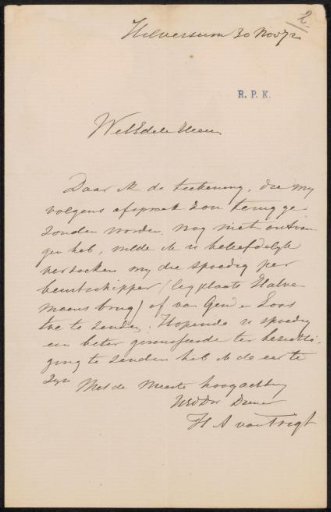 2
Hilversum 30 Nov 72
R. P. K.
WelEdele Heer
Daar ik de teekening, die my
volgens afspraak zou terug ge-
zonden worden, nog niet ontvan-
gen heb, wilde ik u beleefdelyk
verzoeken my die spoedig per
beurtschipper (legplaats Halve-
maansbrug) of van Gend en Loos
toe te zenden. Hopende u spoedig
een beter ter bezichti-
ging te zenden heb ik de eer te
zyn
Met de meeste hoogachting
UEdDw Diener
H A van Trigt